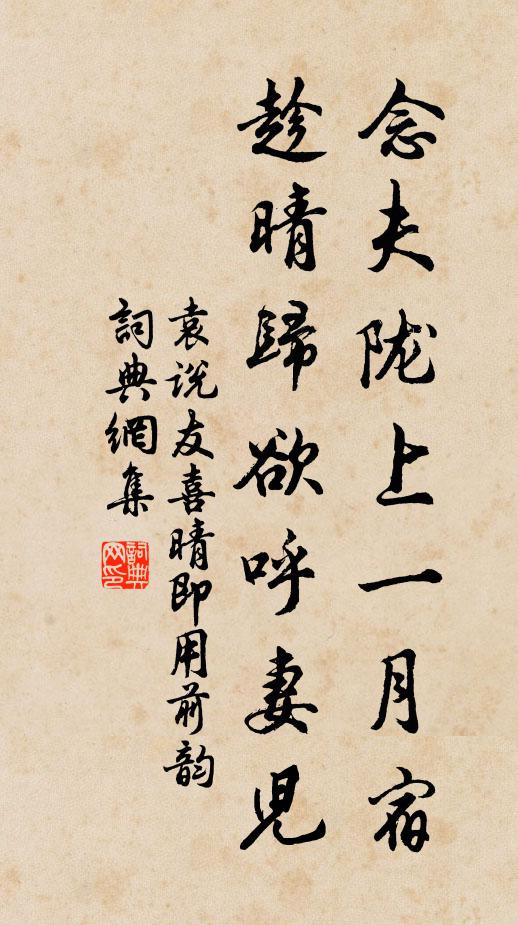 念夫陇上一月宿
趁晴歸欲呼妻児
袁说友喜晴即用前韵
詞典網集
詞典网印